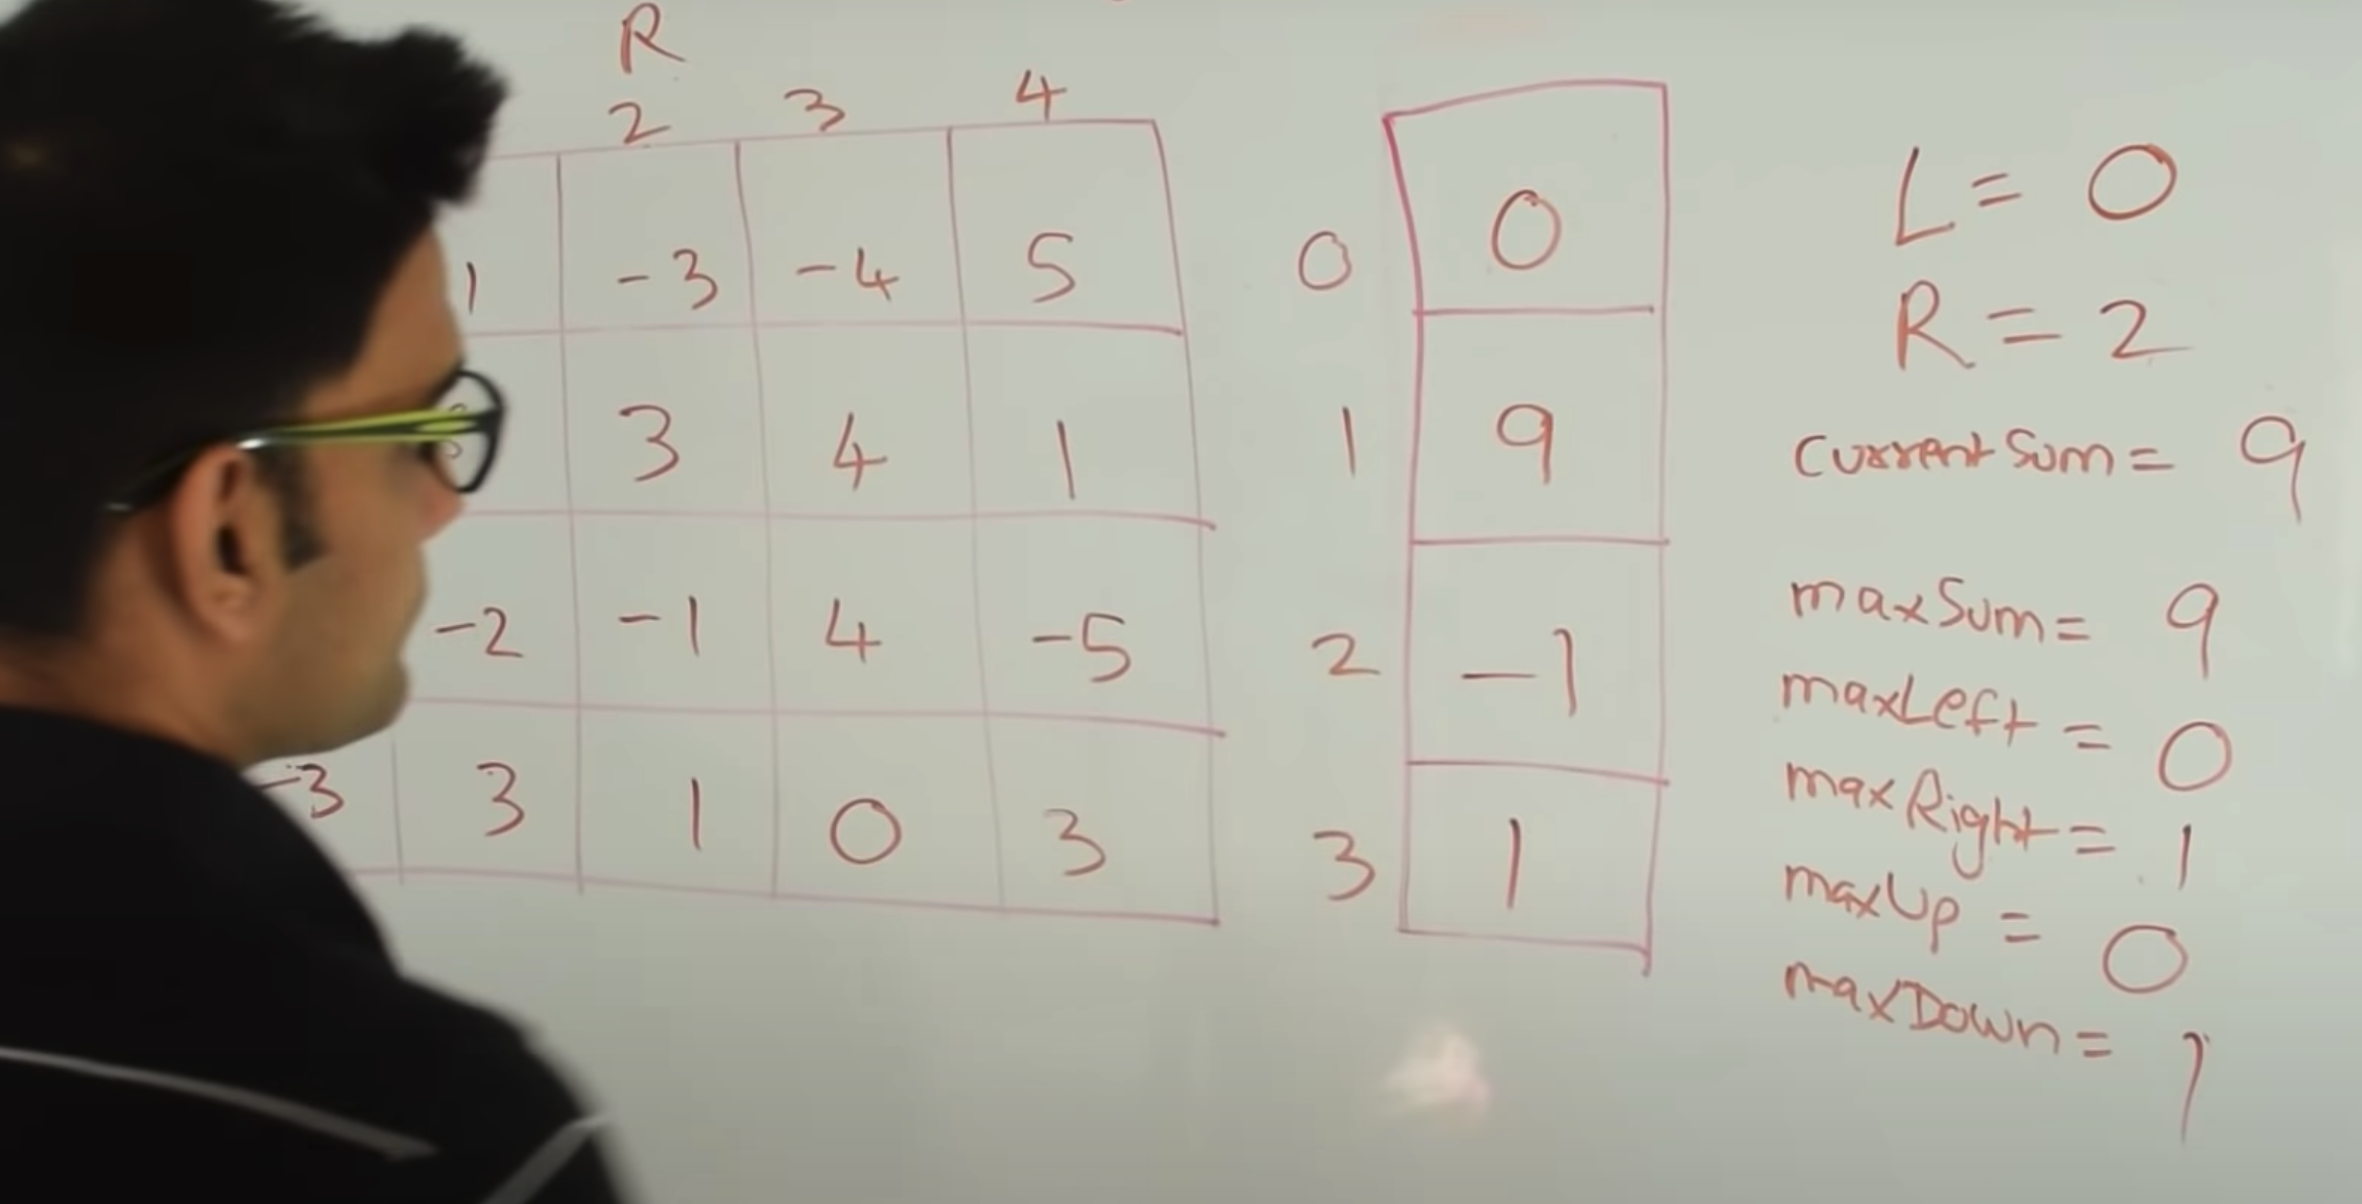 R
2 3 4
1 -3 -4 5
3 4 1
-2 -1 4 -5
-3 3 1 0 3
0 0
1 9
2 -1
3 1
L = 0
R = 2
currentSum = 9
maxSum = 9
maxLeft = 0
maxRight = 1
maxUp = 0
maxDown = 1